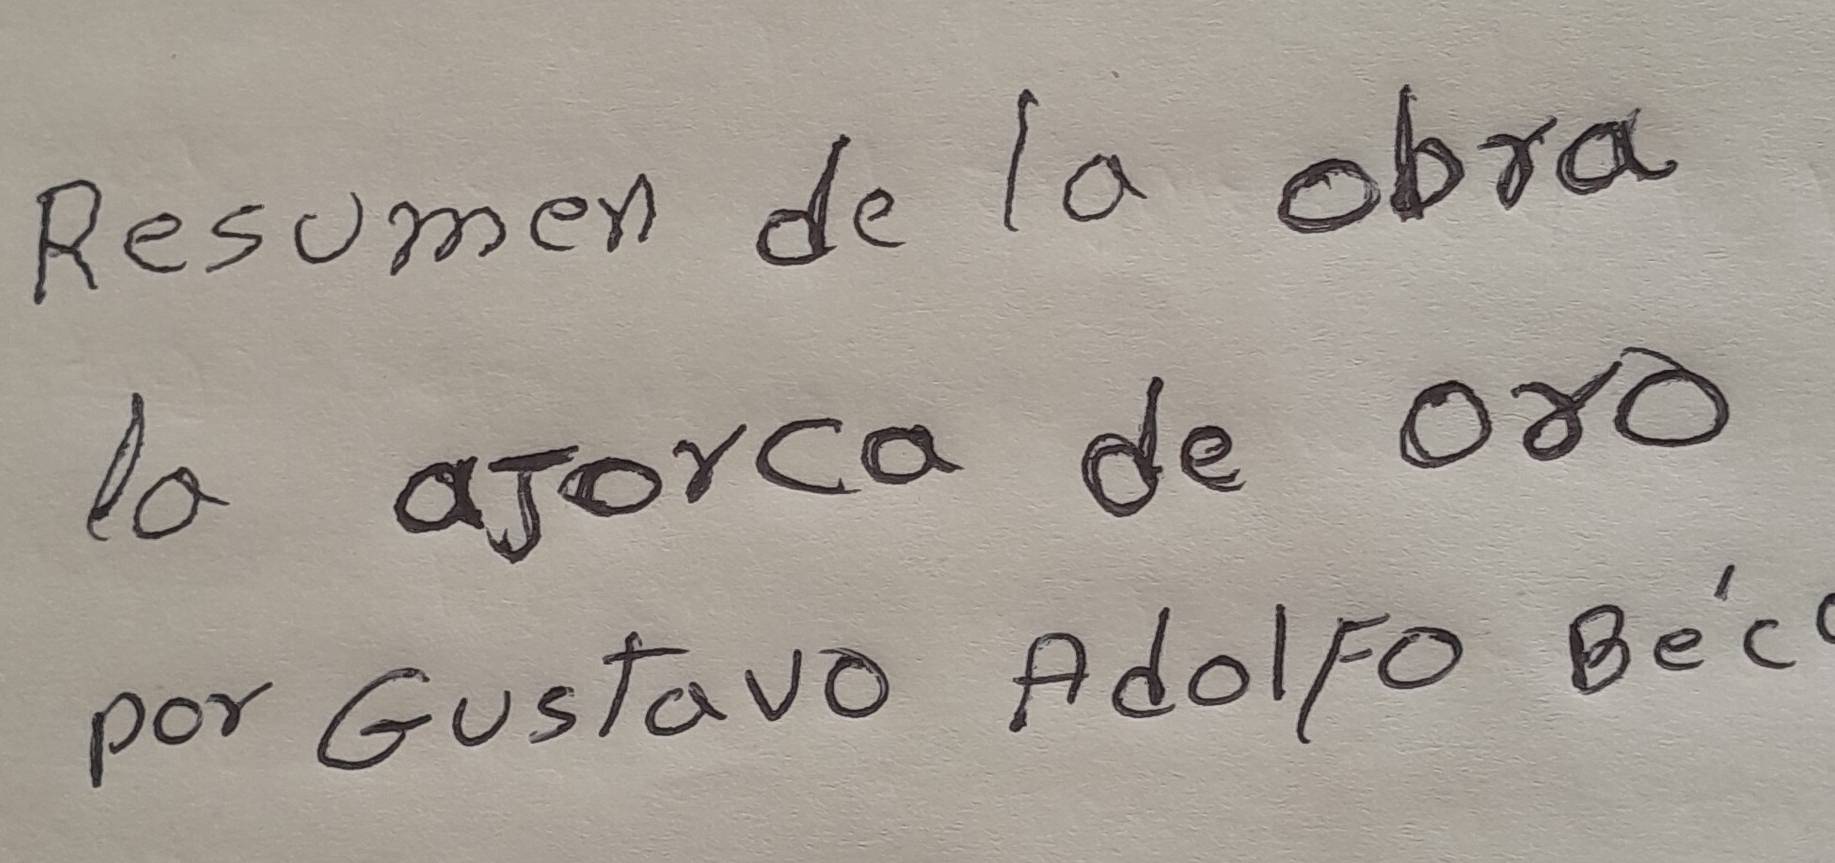 Resumen de la obra
la ajorca de oro
por Gustavo Adolfo Béc